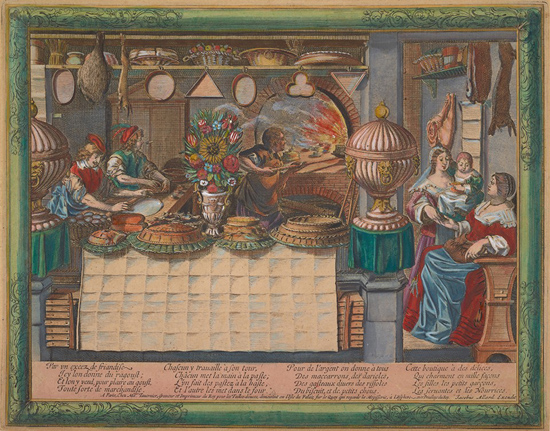 Par vn excez de friandise
Icy l'on donne du ragoust,
Et l'on y vend, pour plaire au goust,
Toute sorte de marchandise.
Chascun y trauaille à son tour,
Chacun met la main à la paste,
L'vn fait des pastez à la haste,
Et l'autre les met dans le four.
Pour de l'argent on donne à tous
Des maccarrons, des darioles,
Des gasteaux diuers, des rissoles
Du biscuit, et de petits choux.
Cette boutique à des délices,
Qui charment en mille façons
Les filles, les petits garçons,
Les seruantes et les Nourrices.
A Paris, Chez Mr. Tauernier, graueur et Imprimeur du Roy pour les tailles douces, demeurant en l'Isle du Palais, sur le Quay qui regarde la Megisserie